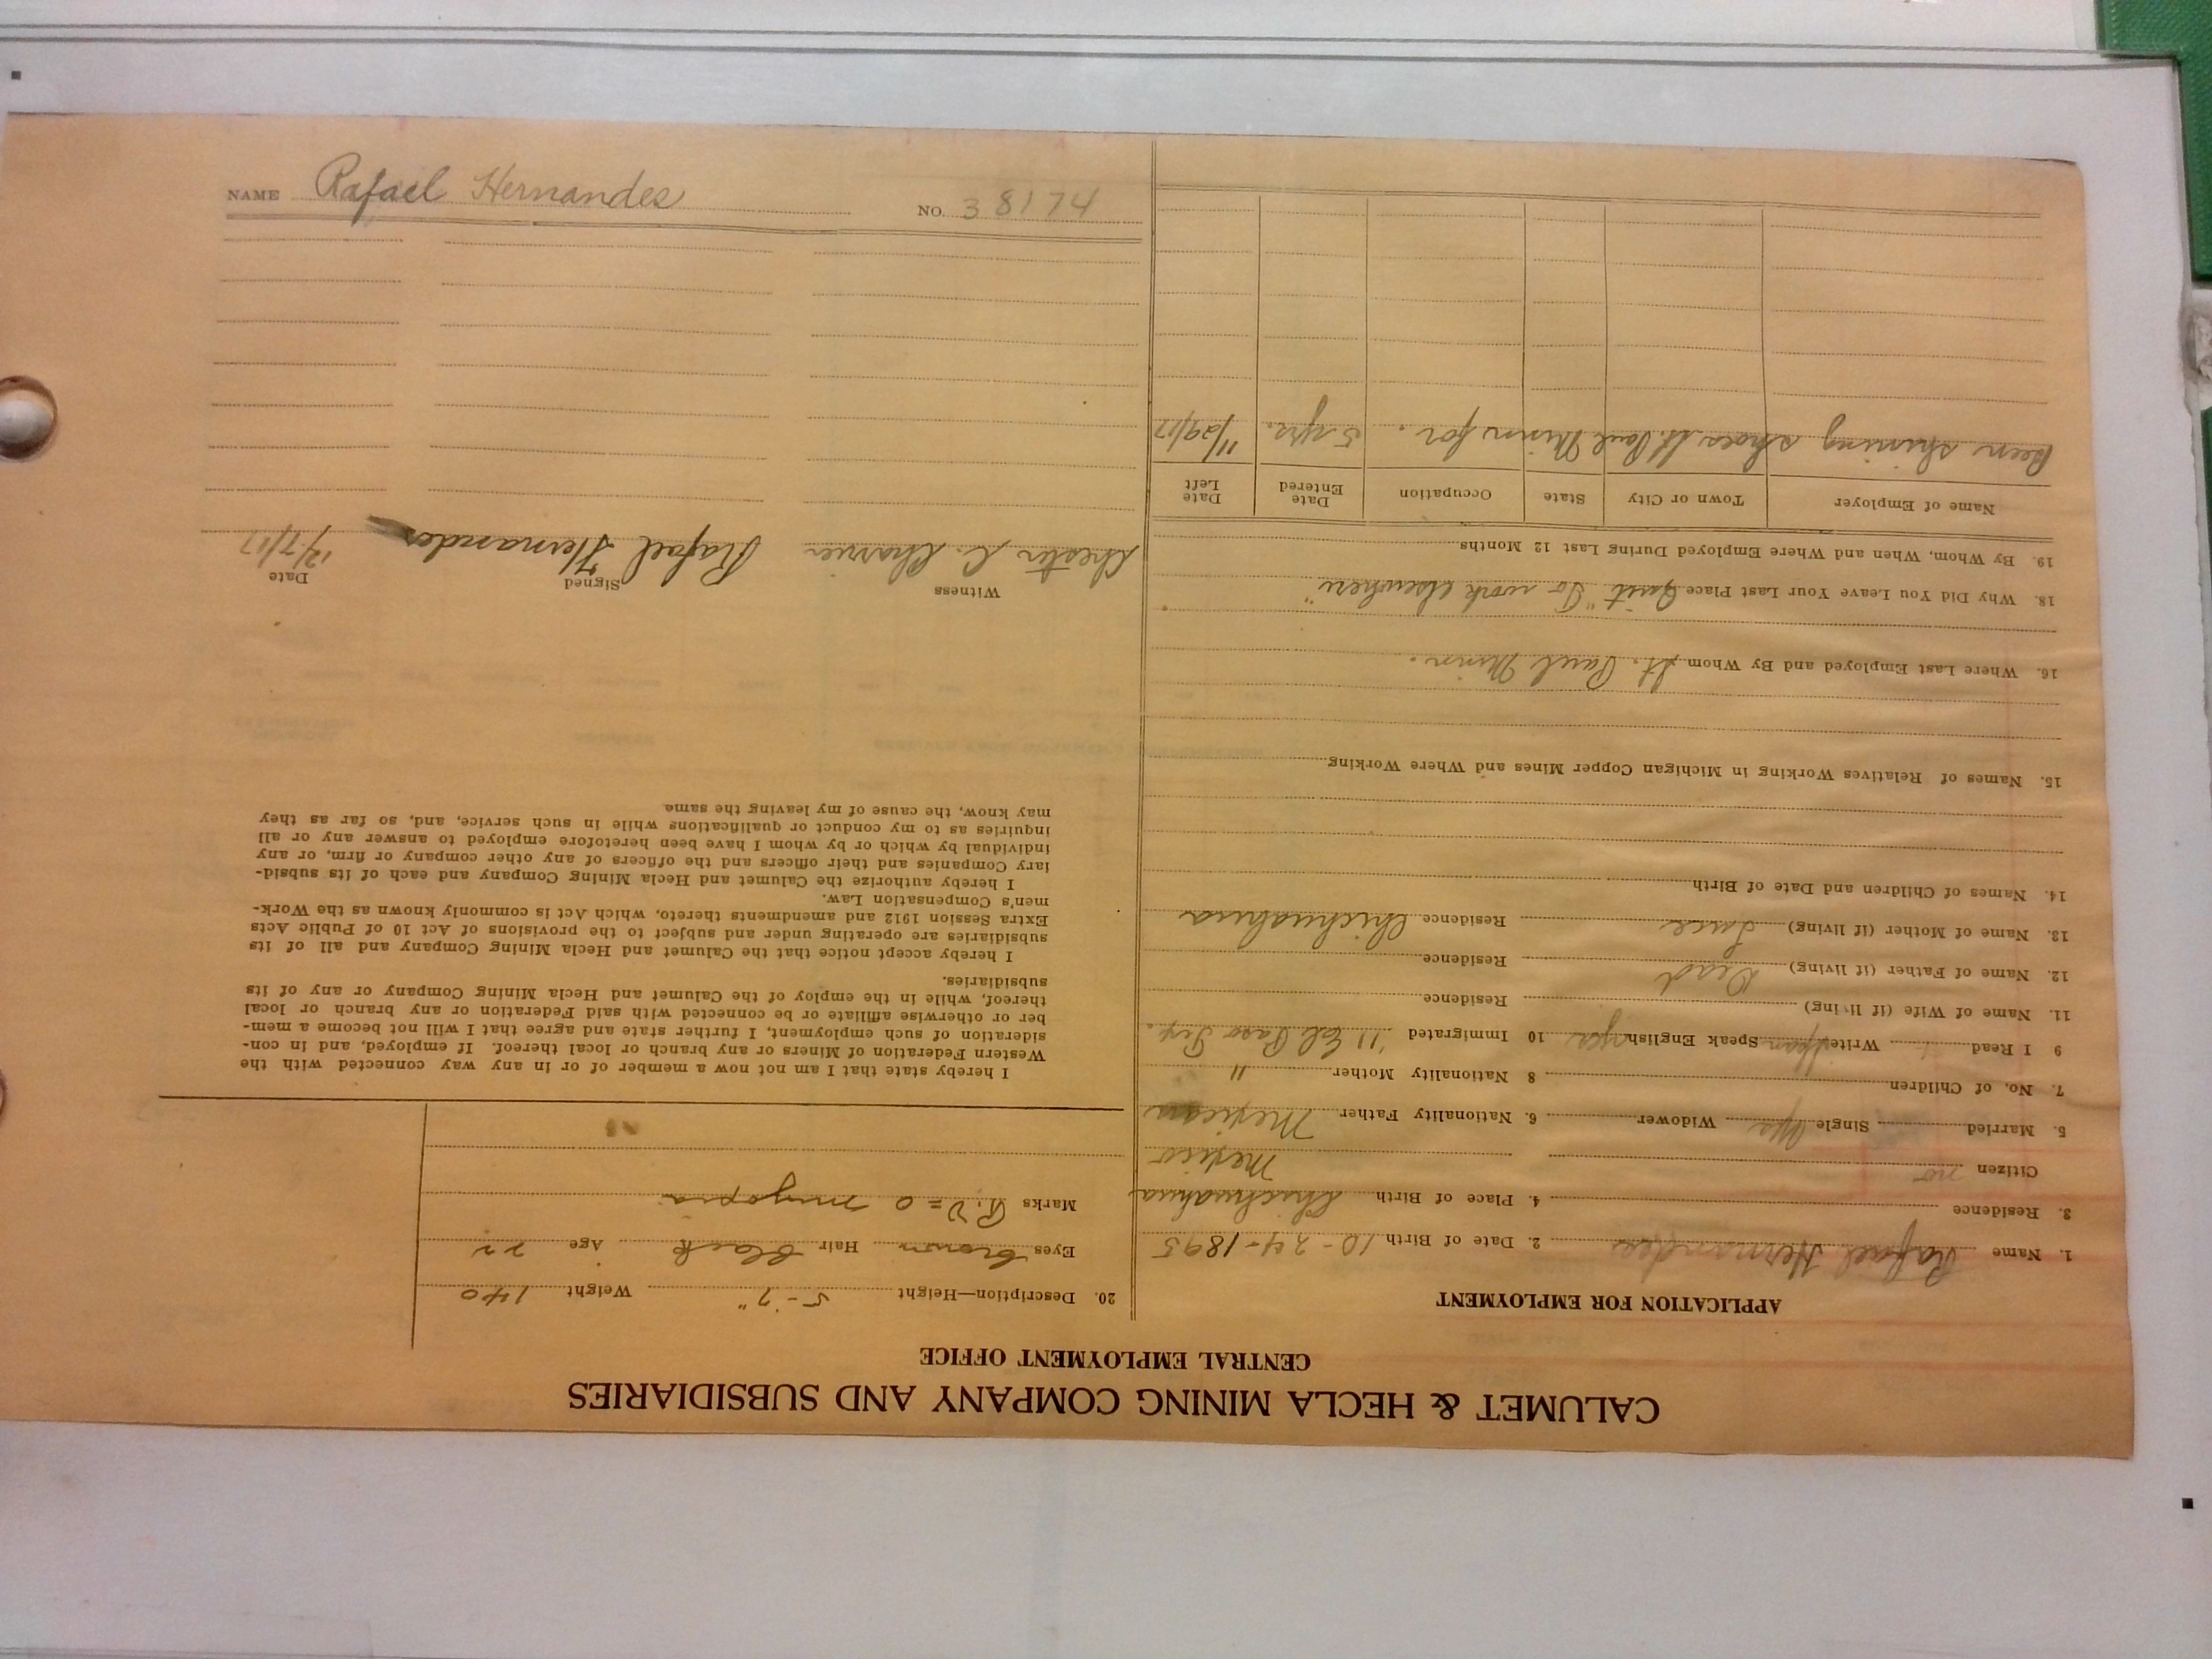 CALUMET & HECLA MINING COMPANY AND SUBSIDIARIES
CENTRAL EMPLOYMENT OFFICE
APPLICATION FOR EMPLOYMENT
1. Name Rafael Hernandes 2. Date of Birth 10-24-1895
3. Residence 4. Place of Birth Chichuahua
Citizen no Mexico
5. Married Single Yes Widower 6. Nationality Father Mexican
7. No. of Children 8 Nationality Mother "
9 I Read Write Span Speak English yes 10 Immigrated '11 El Paso Tex.
11. Name of Wife (if living) Residence
12. Name of Father (if living) Dead Residence
13. Name of Mother (if living) Residence Chichuahua
14. Names of Children and Date of Birth
15. Names of Relatives Working in Michigan Copper Mines and Where Working
16. Where Last Employed and By Whom St. Paul Minn.
18. Why Did You Leave Your Last Place Quit "To work elsewhere"
19. By Whom, When and Where Employed During Last 12 Months
Name of Employer Town or City State Occupation Date Entered Date Left
Been shining shoes St. Paul Minn for. 5 yrs. 11/29/17
20. Description—Height 5-7" Weight 140
Eyes brown Hair black Age 22
Marks R.V=0 myopia
I hereby state that I am not now a member of or in any way connected with the
Western Federation of Miners or any branch or local thereof. If employed, and in con-
sideration of such employment, I further state and agree that I will not become a mem-
ber or otherwise affiliate or be connected with said Federation or any branch or local
thereof, while in the employ of the Calumet and Hecla Mining Company or any of its
subsidiaries.
I hereby accept notice that the Calumet and Hecla Mining Company and all of its
subsidiaries are operating under and subject to the provisions of Act 10 of Public Acts
Extra Session 1912 and amendments thereto, which Act is commonly known as the Work-
men's Compensation Law.
I hereby authorize the Calumet and Hecla Mining Company and each of its subsid-
iary Companies and their officers and the officers of any other company or firm, or any
individual by which or by whom I have been heretofore employed to answer any or all
inquiries as to my conduct or qualifications while in such service, and, so far as they
may know, the cause of my leaving the same
Witness Signed Date
Chester C. Rafael Hernandes 12/7/17
NAME Rafael Hernandes NO. 38174